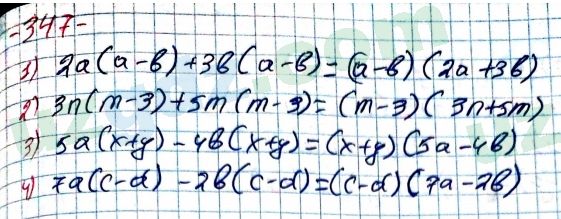 -347-
1) 2a(a-b)+3b(a-b)=(a-b)(2a+3b)
2) 3n(m-3)+5m(m-3)=(m-3)(3n+5m)
3) 5a(x+y)-4b(x+y)=(x+y)(5a-4b)
4) 7a(c-d)-2b(c-d)=(c-d)(7a-2b)